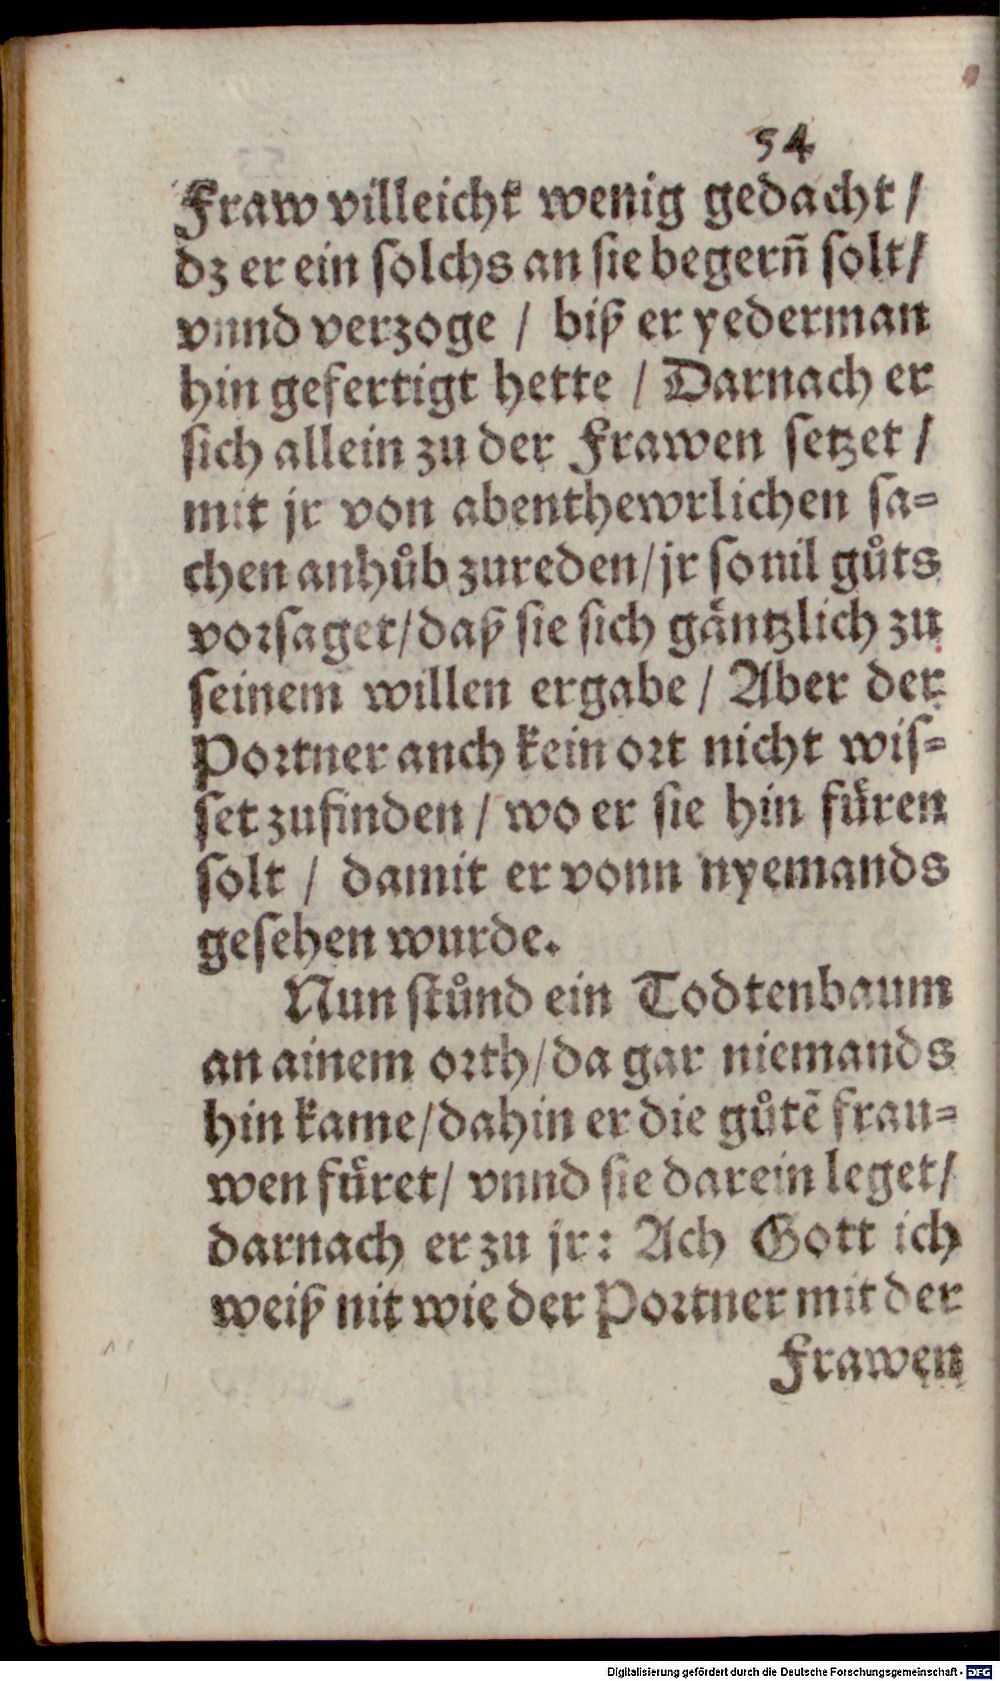 54
Fraw villeicht wenig gedacht /
dz er ein solchs an sie begern̄ solt /
vnnd verzoge / biß er yederman
hin gefertigt hette / Darnach er
sich allein zu der Frawen setzet /
mit jr von abenthewrlichen sa=
chen anhůb zureden / jr so nil gůts
vorsaget / daß sie sich gäntzlich zu
seinem willen ergabe / Aber der
Portner anch kein ort nicht wis=
set zufinden / wo er sie hin füren
solt / damit er vonn nyemands
gesehen wurde.
Nun stůnd ein Todtenbaum
an ainem orth / da gar niemands
hin kame / dahin er die gůtē frau=
wen füret / vnnd sie darein leget /
darnach er zu jr: Ach Gott ich
weiß nit wie der Portner mit der
Frawen
Digitalisierung gefördert durch die Deutsche Forschungsgemeinschaft - DFG